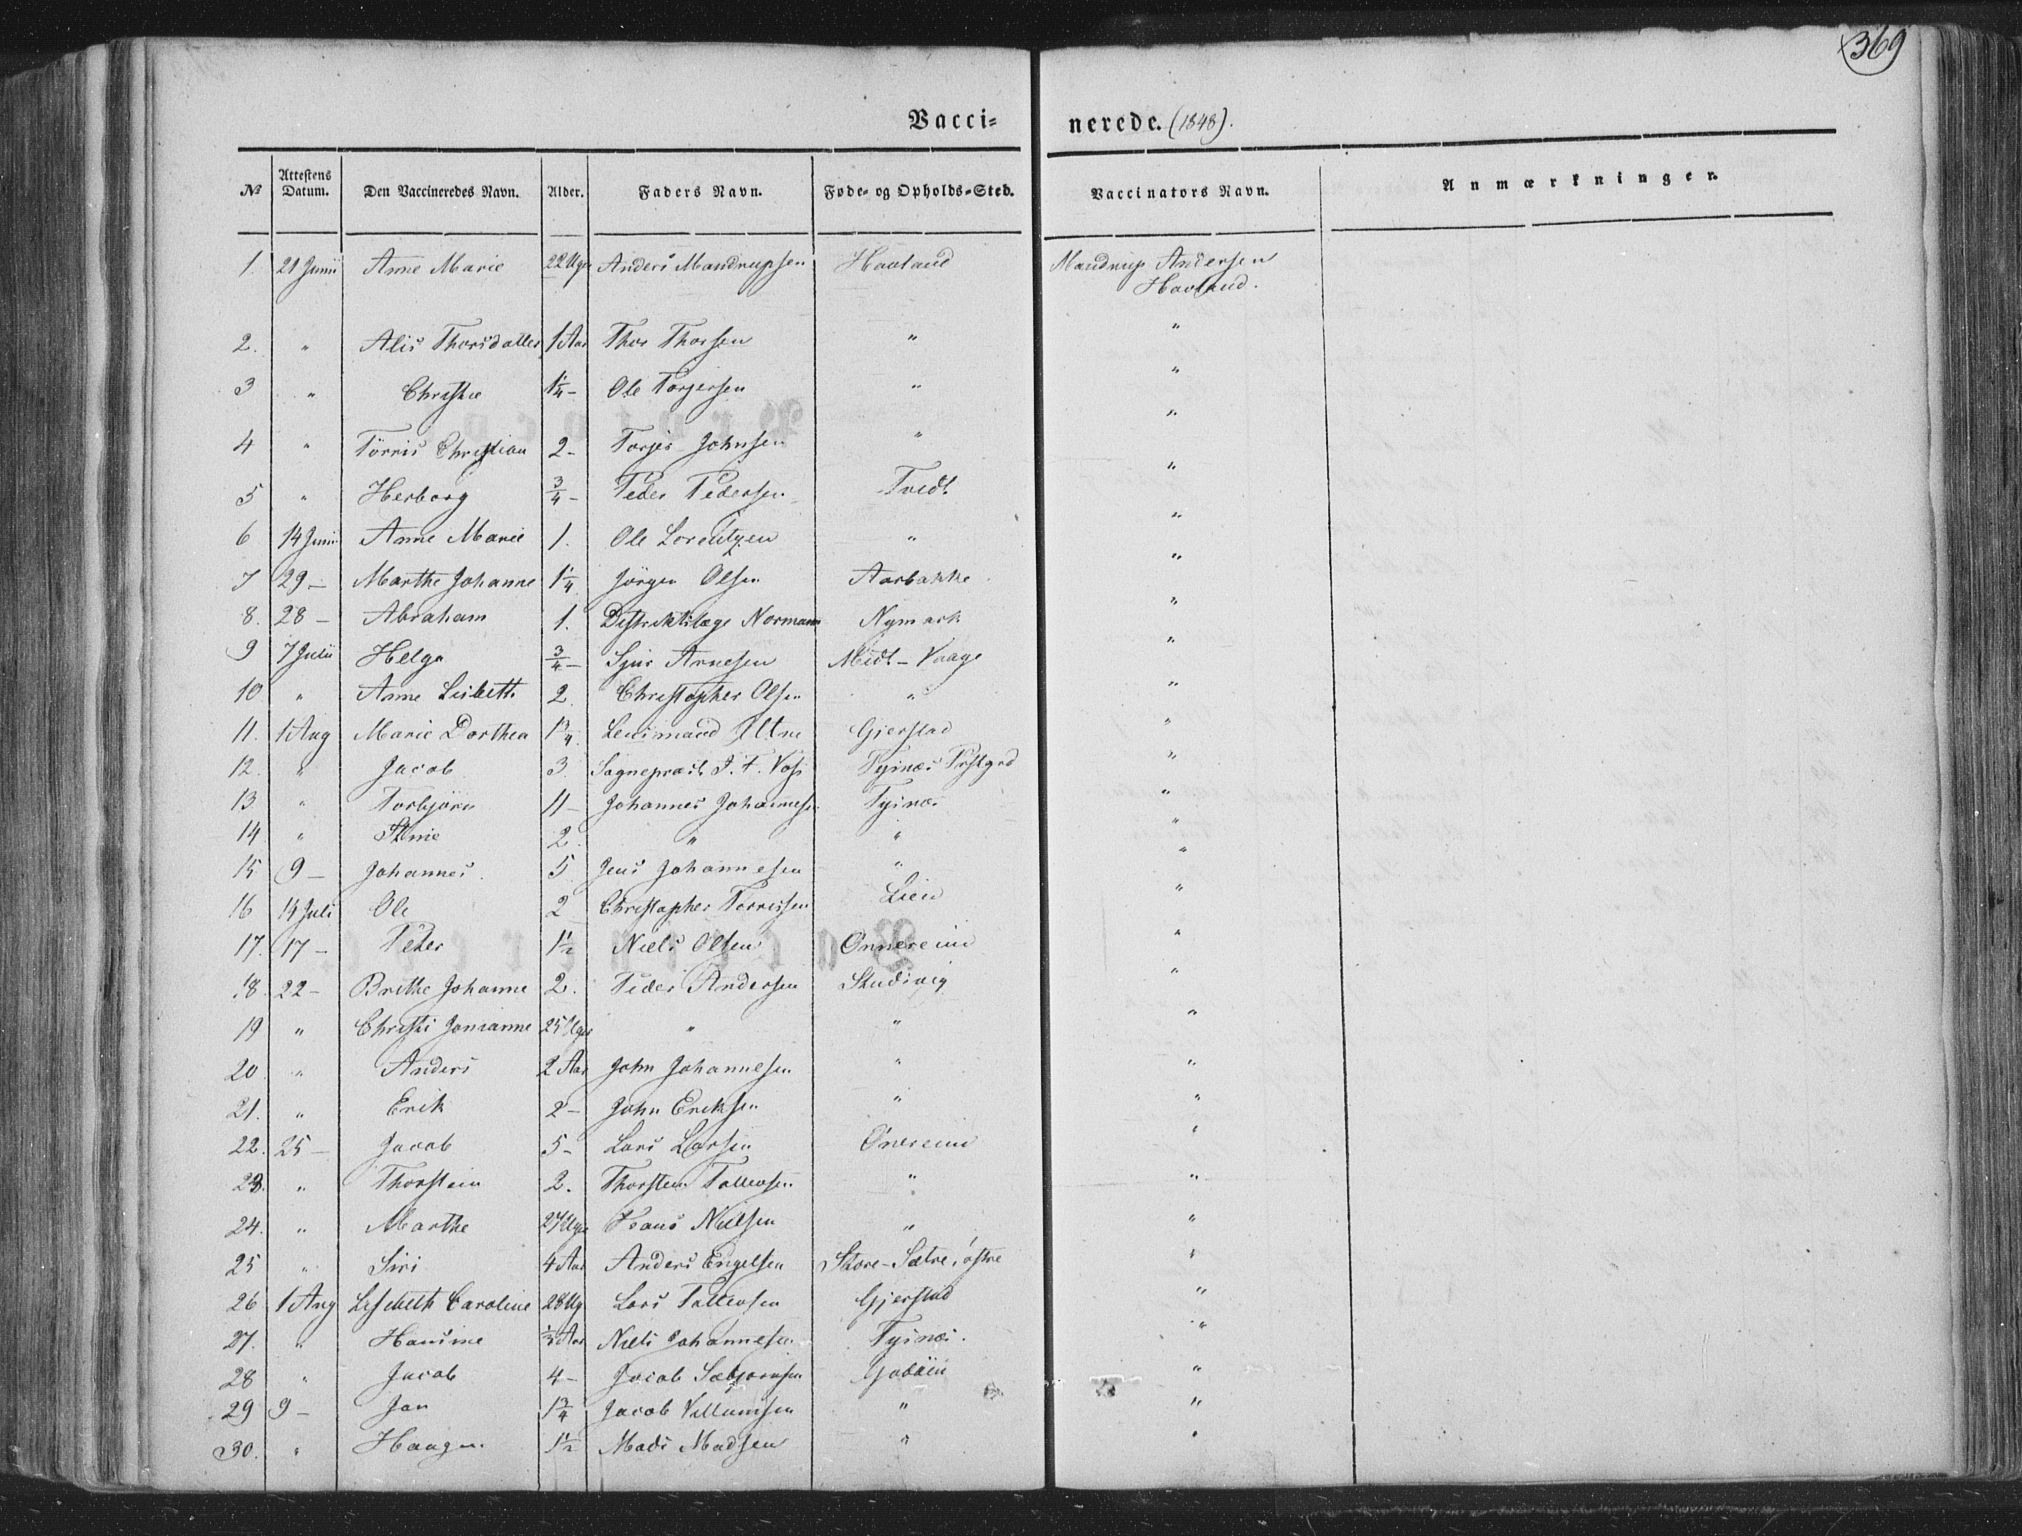 369
Vacci-nerede. (1848).
№ Attestens Datum. Den Vaccineredes Navn. Alder. Faders Navn. Føde- og Opholds-Sted. Vaccinators Navn. Anmærkninger.
1. 21 Junii Anne Marie 22 Uger Anders Mandrupsen Havland Mandrup Andersen
Havland.
2. " Alis Thorsdatter 1 Aar Thor Thorsen " "
3 " Christie 1¼ - Ole Torgersen " "
4 " Tørris Christian 2 - Torjer Johnsen " "
5 " Herborg ¾ - Peder Pedersen Tvedt "
6 14 Junii Anne Marie 1. Ole Lorentzen " "
7 29 - Marthe Johanne 1¼ Jørgen Olsen Aarbakke "
8. 28 - Abraham 1. Distriktslæge Normann Nymark "
9 7 Julii Helga ¾ - Sjur Arnesen Midt-Vaage "
10 " Anne Lisbeth 2 Christopher Olsen " "
11. 1 Aug Marie Dorthea 1¾ Lensmand Gjerstad "
12. " Jacob 3 Sognepræst J. F. Voss Tysnæs Prstgrd "
13 " Torbjørn 11 - Johannes Johannesen Tysnæs "
14 " 2. " " "
15 9 - Johannes. 5 Jens Johannesen " "
16 14 Juli Ole 2 Christopher Torrissen Lien "
17. 17 - Peder 1½ Niels Olsen Onnereim "
18. 22 - Brithe Johanne 2. Peder Andersen Skudsvig "
19 " Christi 25 Uger " " "
20 " Anders 2 Aar John Johannesen " "
21. " Erik 2 - John Eriksen " "
22. 25 - Jacob 5 - Lars Larsen Onereim "
23. " Thorstein 2. Thorsten Tollevsen " "
24. " Marthe 27 Uger Hans Nielsen " "
25 " Siri 4 Aar Anders Engelsen Skore-Sætre, østre "
26 1 Aug Lisebeth Caroline 28 Ug Lars Tollevsen Gjerstad "
27. " Hansine ⅓ Aar Niels Johannesen Tysnæs. "
28 " Jacob 4 - Jacob Sæbjørnsen Godøen "
29 9 - Jon 1¾ Jacob Villumsen " "
30. " Haagen 1½ Mads Madsen " "